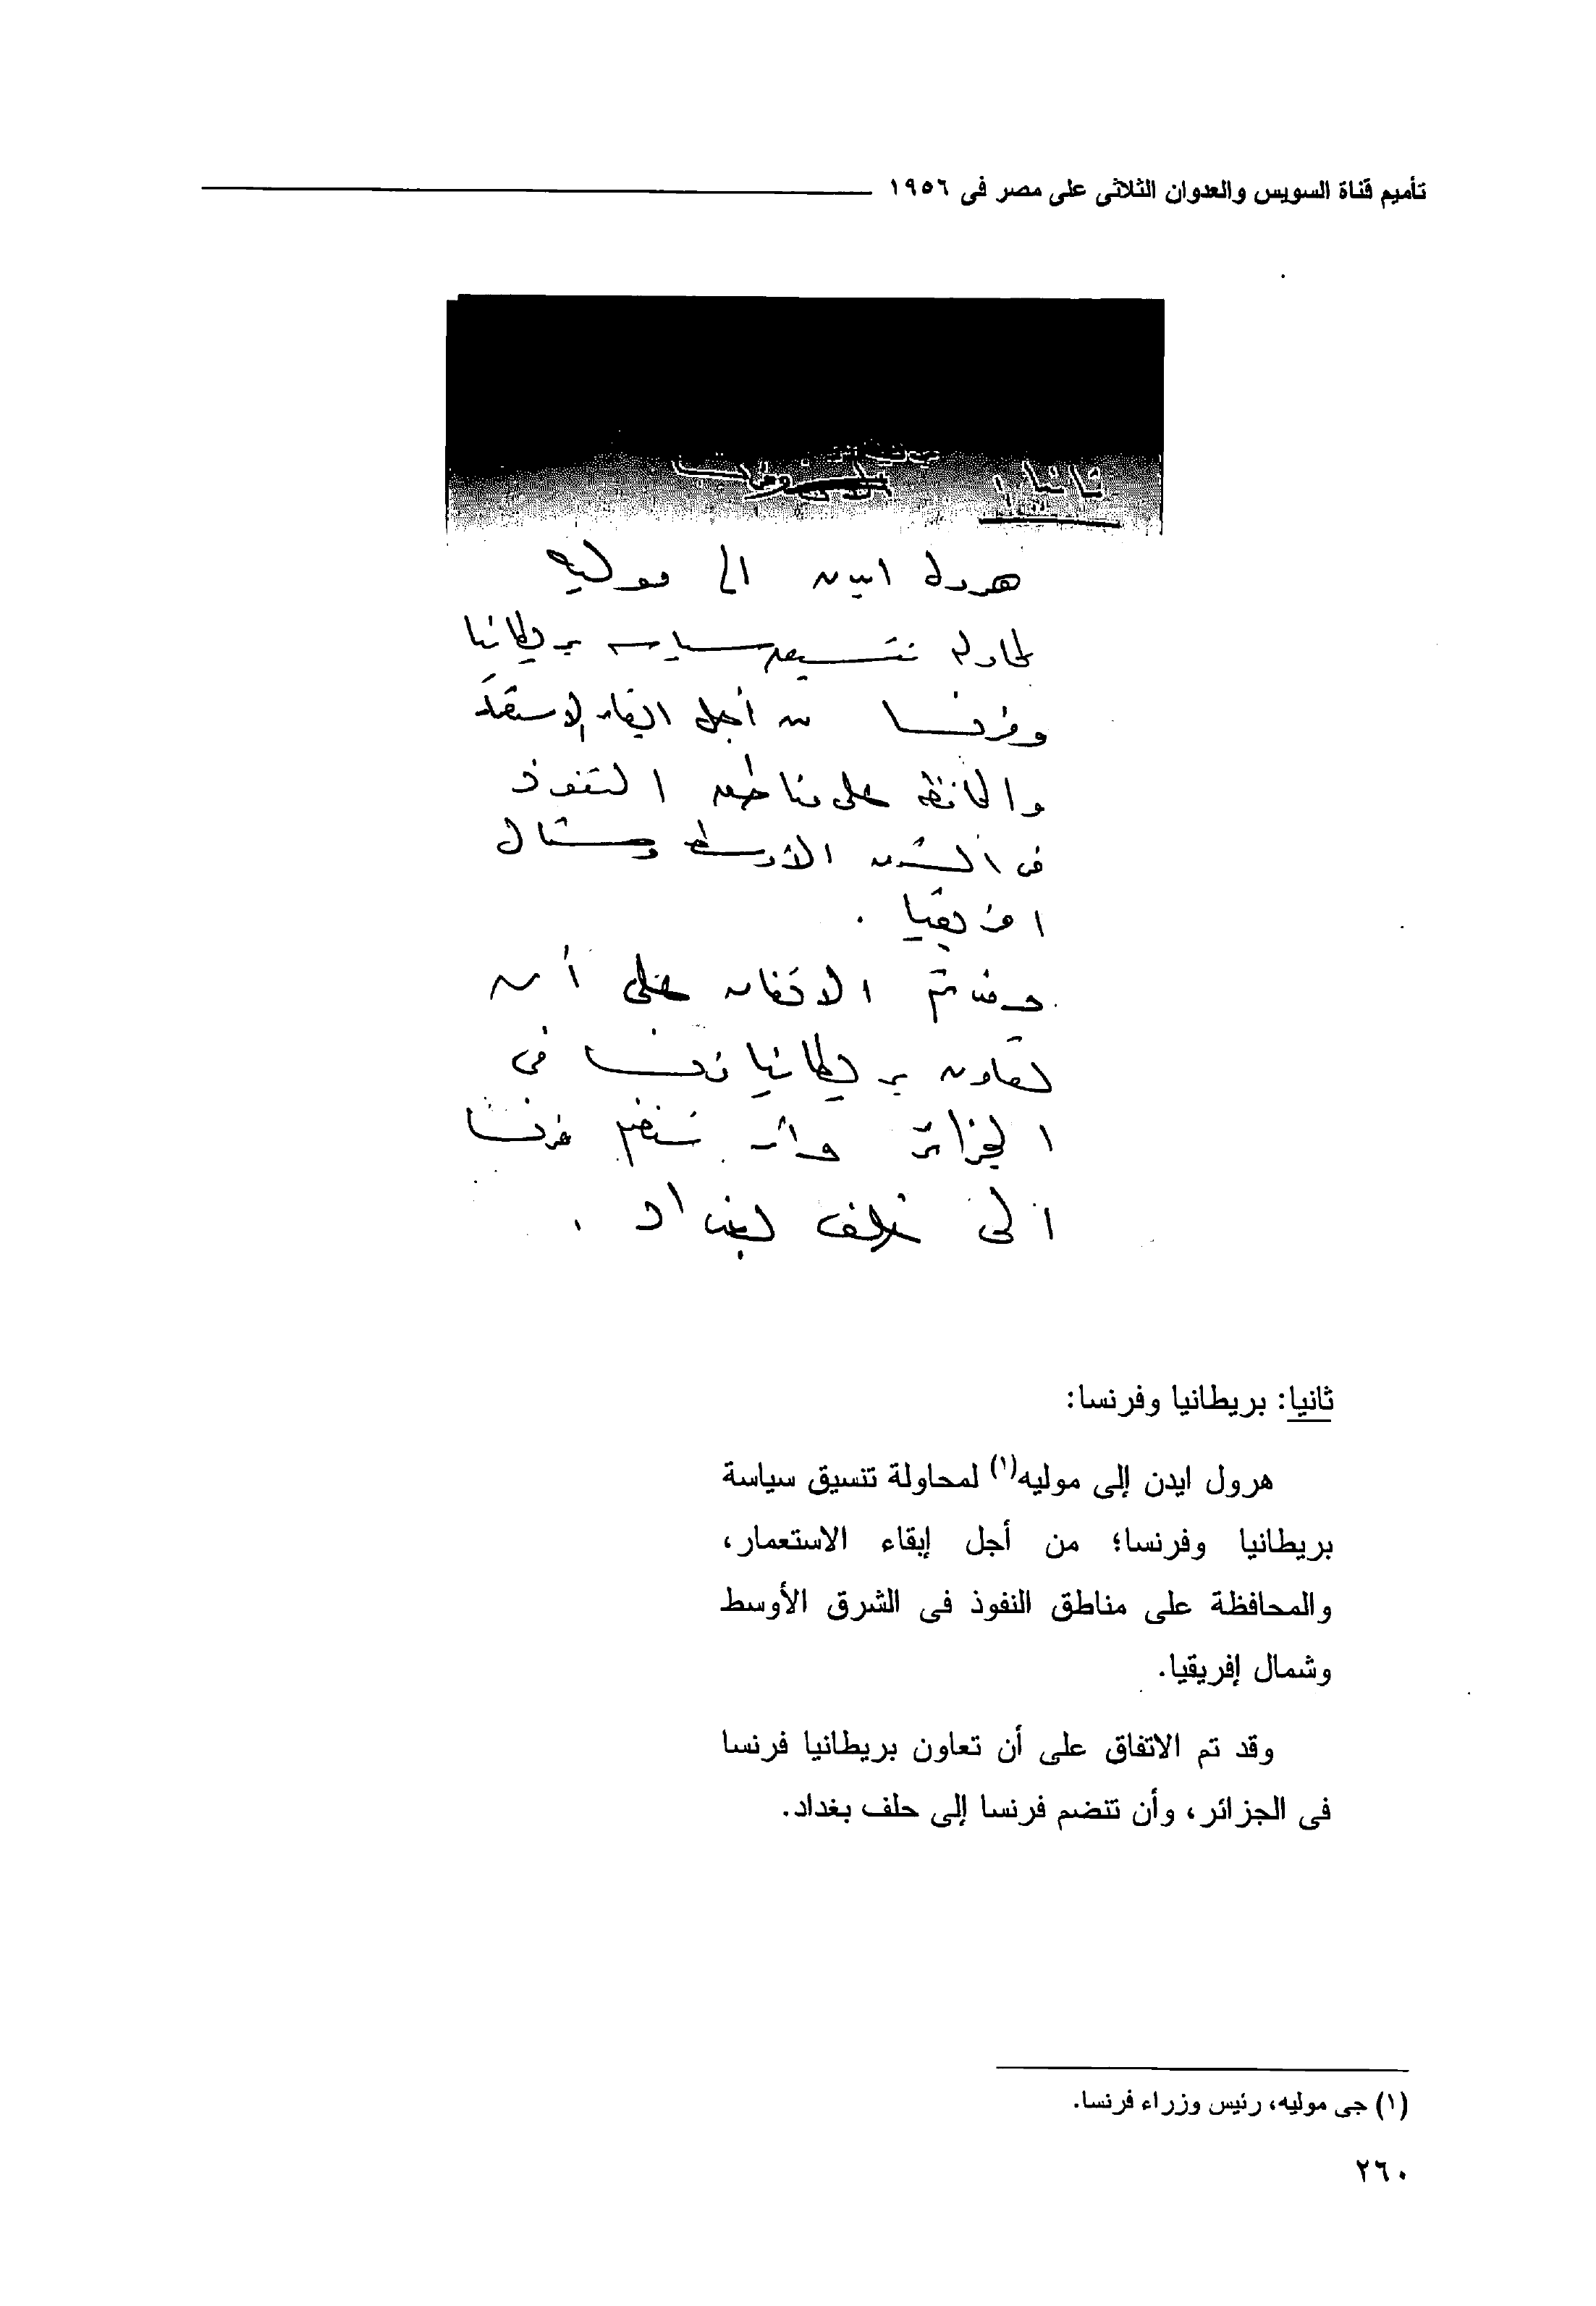 تأميم قناة السويس والعدوان الثلاثى على مصر فى ١٩٥٦
ثانيا
هرول ايدن الى موليه
لمحاولة تنسيق سياسة بريطانيا
وفرنسا من أجل ابقاء الاستعمار
والمحافظة على مناطق النفوذ
فى الشرق الأوسط وشمال
افريقيا .
وقد تم الاتفاق على أن
تعاون بريطانيا فرنسا فى
الجزائر وأن تنضم فرنسا
الى حلف بغداد .
ثانيا: بريطانيا وفرنسا:
هرول ايدن إلى موليه(١) لمحاولة تنسيق سياسة
بريطانيا وفرنسا؛ من أجل إبقاء الاستعمار،
والمحافظة على مناطق النفوذ فى الشرق الأوسط
وشمال إفريقيا.
وقد تم الاتفاق على أن تعاون بريطانيا فرنسا
فى الجزائر، وأن تنضم فرنسا إلى حلف بغداد.
(١) جى موليه، رئيس وزراء فرنسا.
٢٦٠